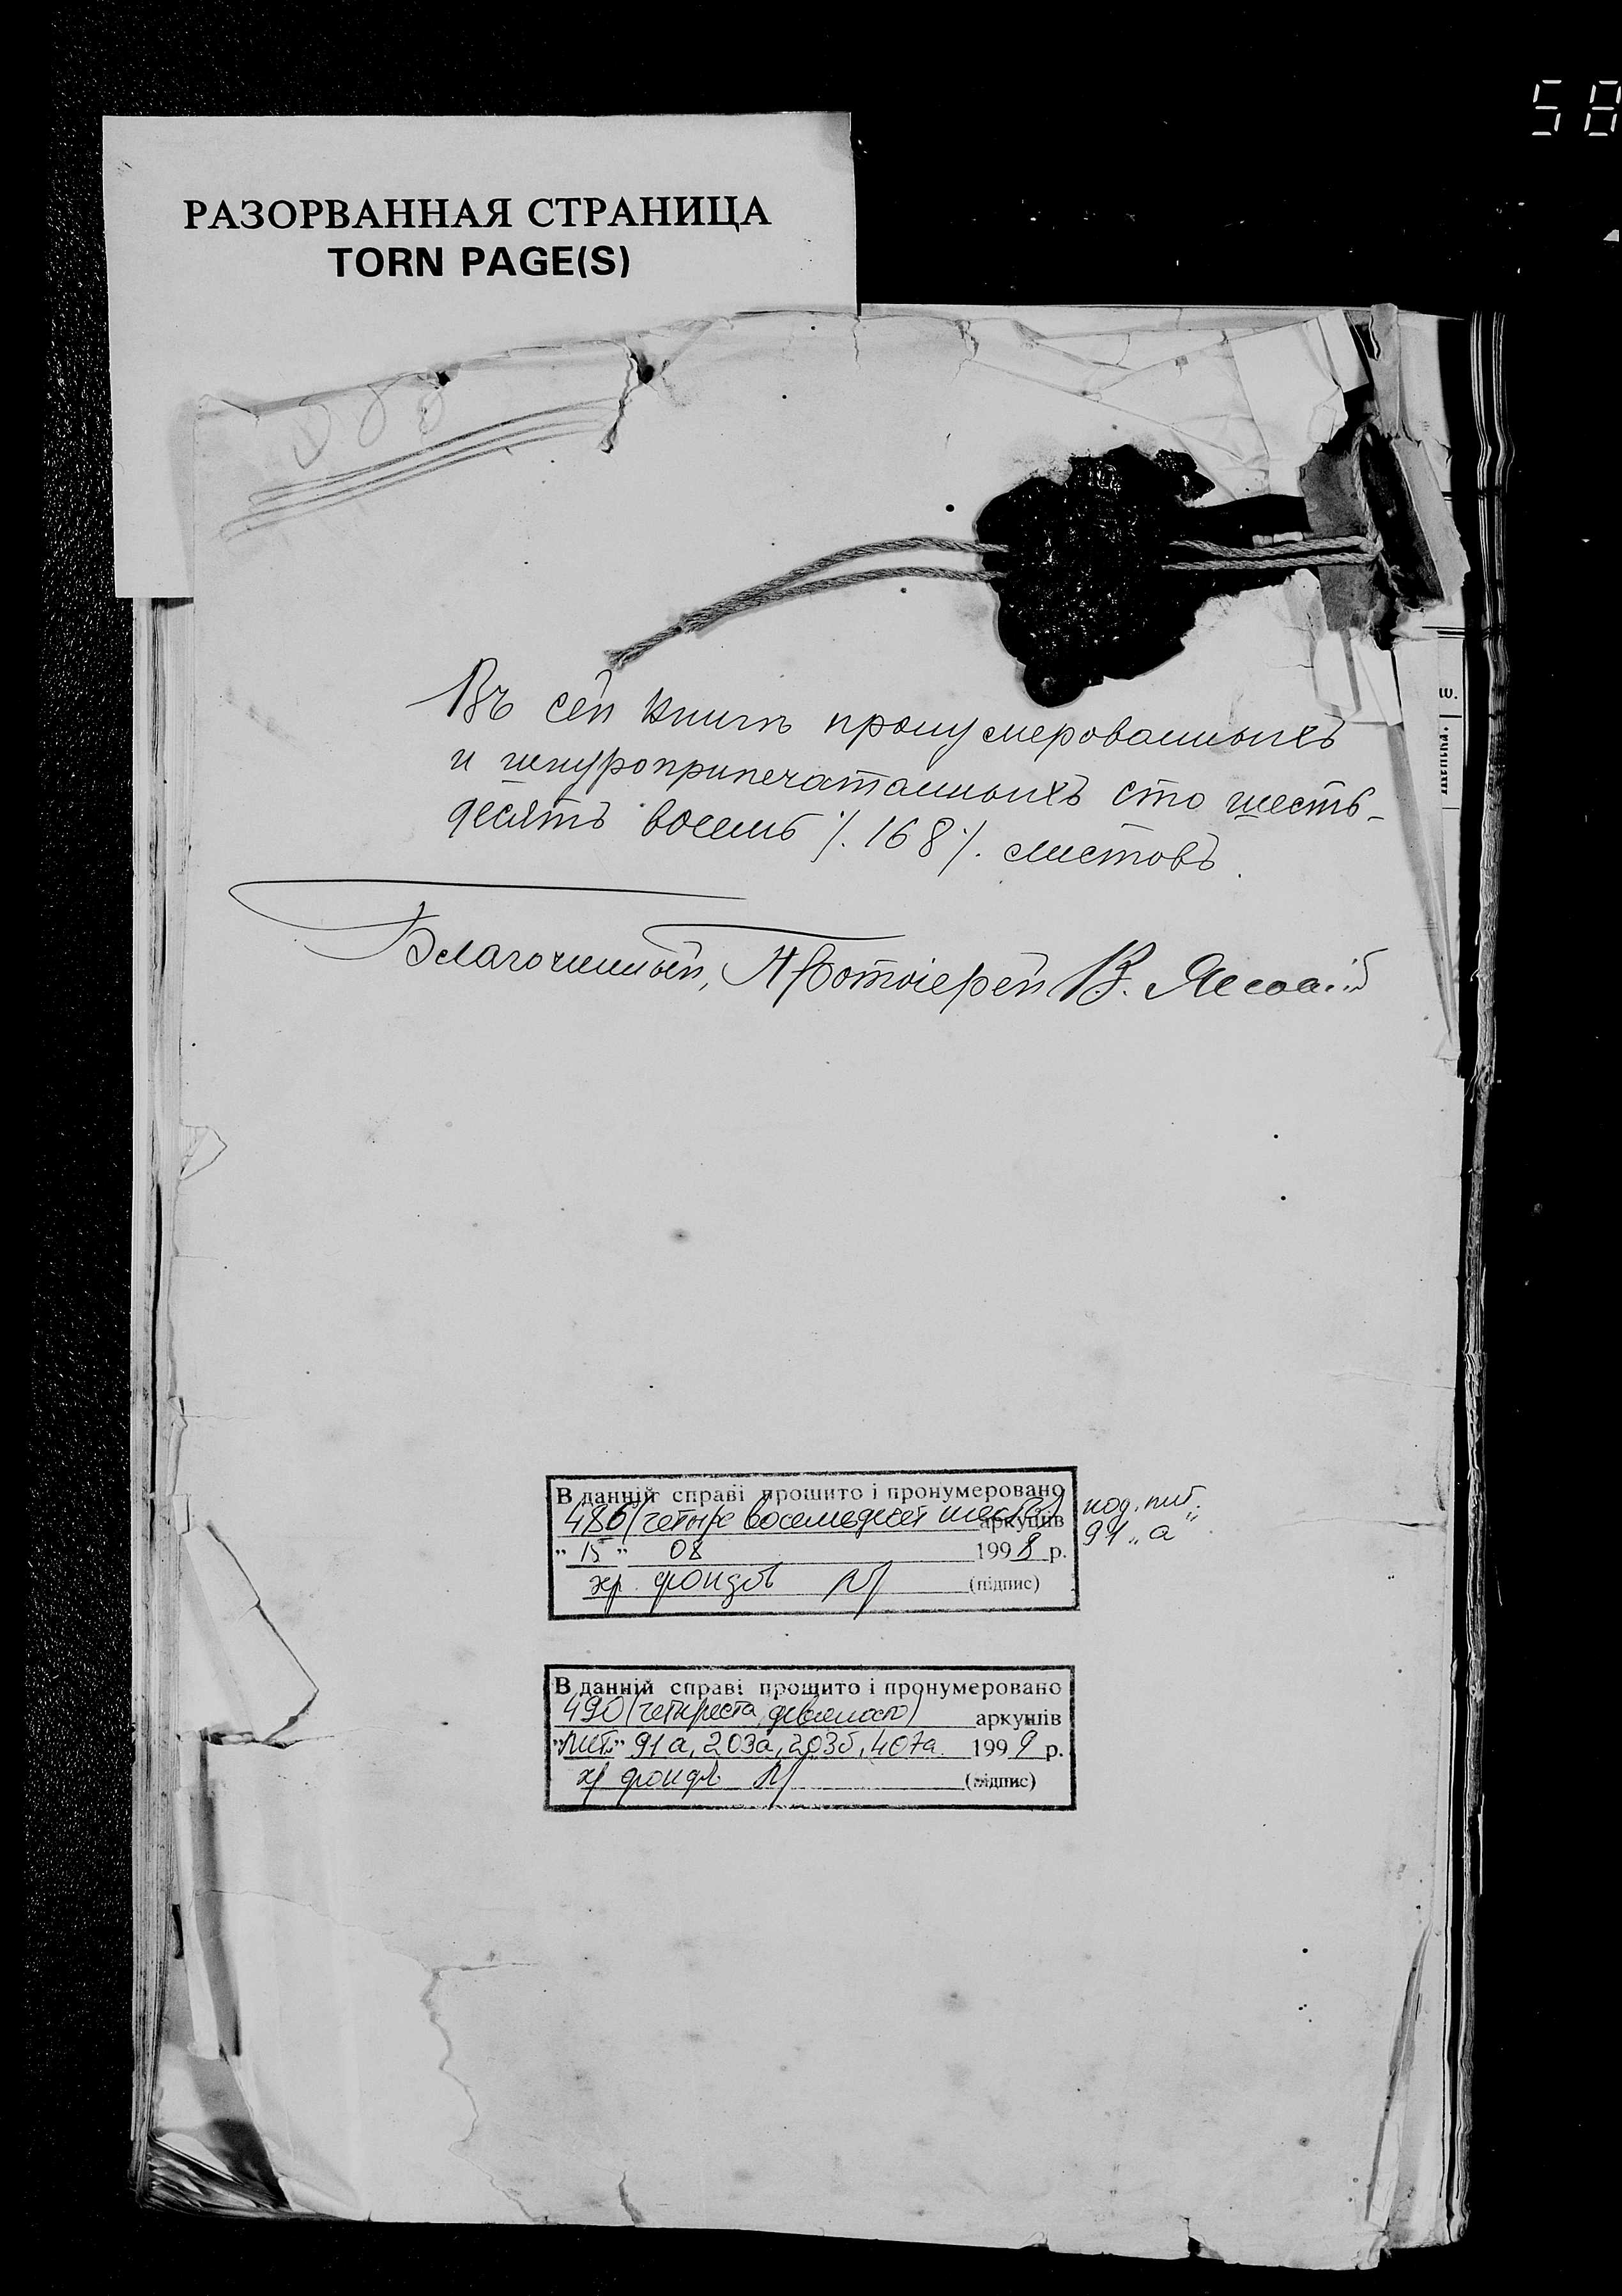 58
РАЗОРВАННАЯ СТРАНИЦА
TORN PAGE(S)
Въ сей книгѣ пронумерованныхъ
и шнуроприпечатанныхъ сто шесть-
десятъ восемь ./. 168 ./. листовъ.
Благочинный, Протоіерей В.
В данній справі прошито і пронумеровано
486 (четыре восемьдесят шесть) аркушів
код. лит.
91 „а"
" 15 " 08 1998 р.
хр. фондов (підпис)
В данній справі прошито і пронумеровано
490 (четыреста девяносто) аркушів
"лит." 91а, 203а, 203б, 407а 1999 р.
хр фондов (підпис)